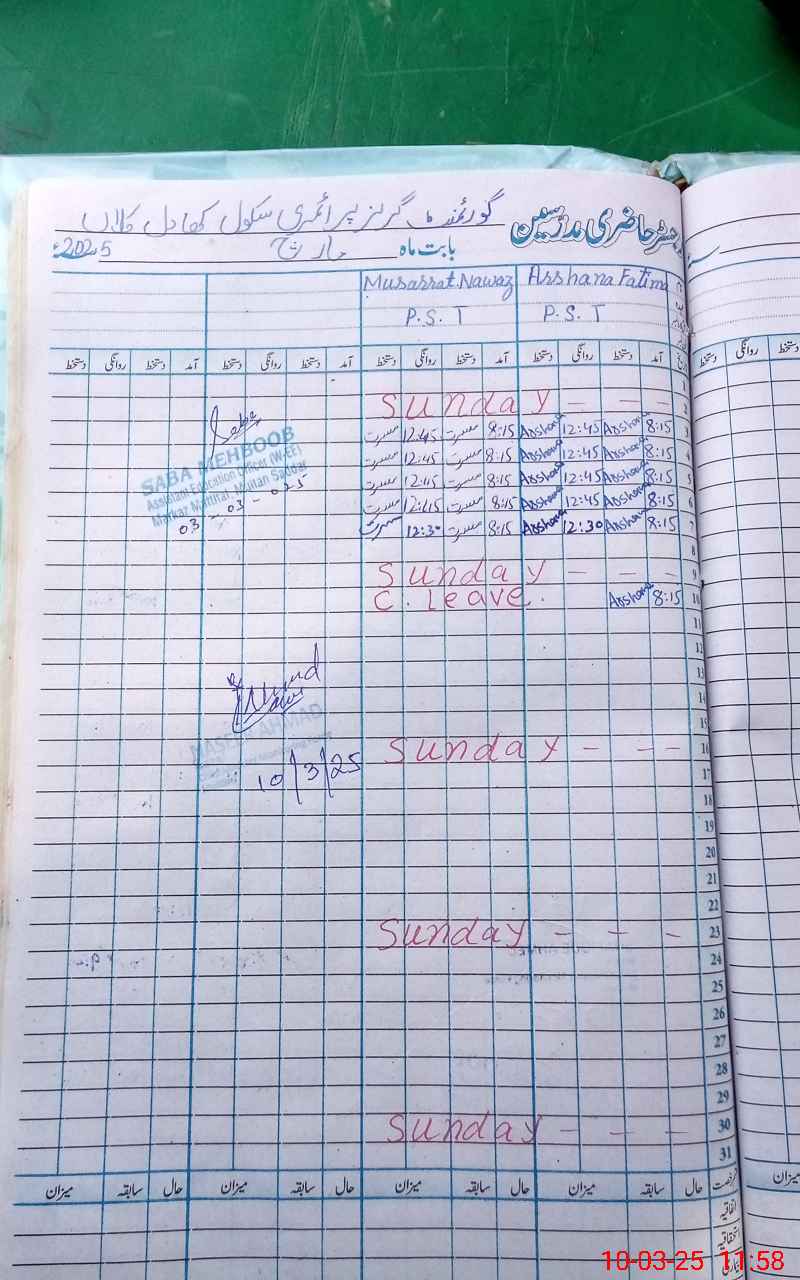 رجسٹر حاضری مدرسین گورنمنٹ گرلز پرائمری سکول
بابت ماہ مارچ 2025ء
Arshana Fatima Musarrat Nawaz
P.S.T P.S.T
آمد دستخط روانگی دستخط آمد دستخط روانگی دستخط آمد دستخط روانگی دستخط
1
2 Sunday - - -
3 8:15 Arshana 12:45 Arshana 8:15 مسرت 12:45 مسرت
4 8:15 Arshana 12:45 Arshana 8:15 مسرت 12:45 مسرت
5 8:15 Arshana 12:45 Arshana 8:15 مسرت 12:45 مسرت
6 8:15 Arshana 12:45 Arshana 8:15 مسرت 12:45 مسرت
7 8:15 Arshana 12:30 Arshana 8:15 مسرت 12:30 مسرت
Saba
SABA MEHBOOB
Assistant Education Officer (W-EE)
Markaz Mattital, Multan Saddar
03-03-025
8
9 Sunday - - -
10 8:15 Arshana C. Leave.
11
12
13
14
15
16 Sunday - - -
AHMAD
10/3/25
17
18
19
20
21
22
23 Sunday - - -
24
25
26
27
28
29
30 Sunday - - -
31
رخصت حال سابقہ میزان حال سابقہ میزان حال سابقہ میزان
اتفاقیہ
استحقاقیہ
بیماری
روانگی دستخط
میزان
10-03-25 11:58